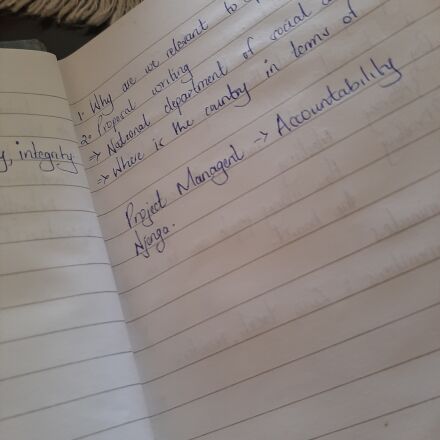 y, integrity
1. Why are we relevant to
2. Proposal writing
→ National department of social
→ Where is the country in terms of
Project Managent → Accountability
Njenga.